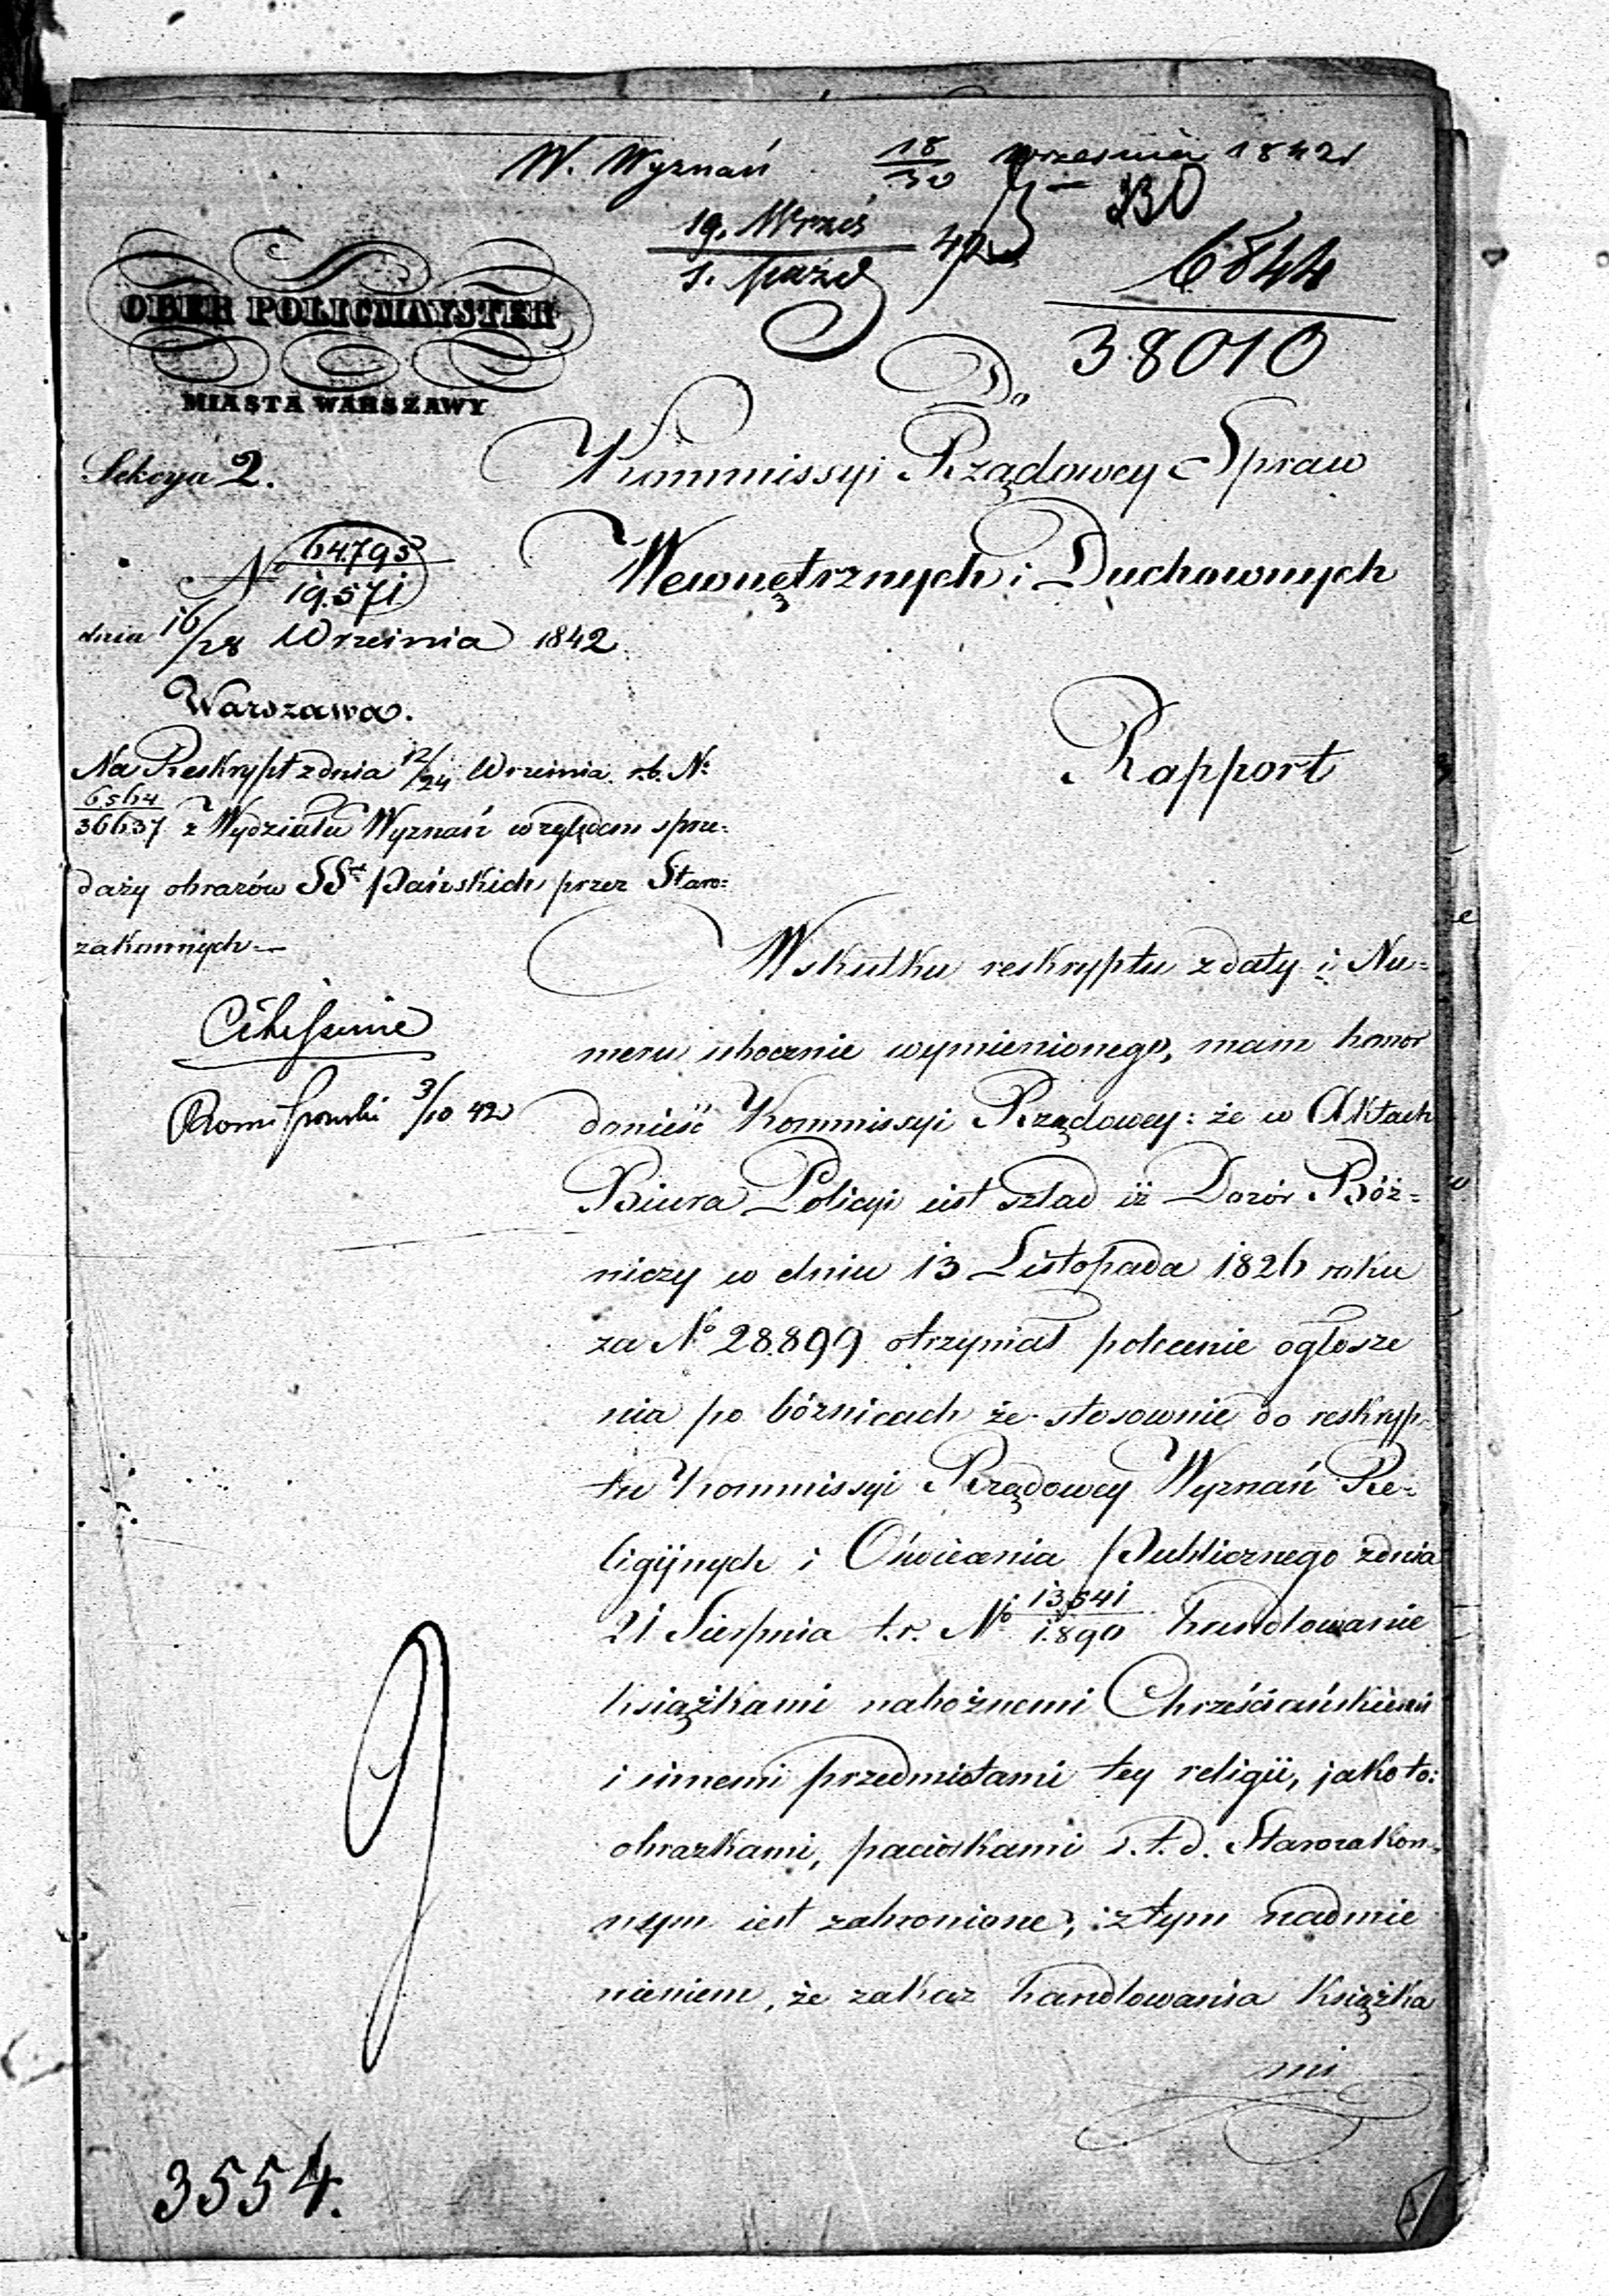 W. Wyznań 18/30 września 1842
19. Wrześ
1. Paźd 42
6844
38010
OBER POLICMAYSTER
MIASTA WARSZAWY
Sekcya 2.
N 64.795
19.571
dnia 16/28 Września 1842.
Warszawa.
Na Reskrypt z dnia 12/24 Września r.b. No
6.564
36637 z Wydziału Wyznań względem sprze=
daży obrazów SStch Pańskich przez Staro=
zakonnych.—
3/10 42
Do
Kommissyi Rządowey Spraw
Wewnętrznych i Duchownych
Rapport
Wskutku reskryptu z daty i Nu=
meru ubocznie wymienionego, mam honor
donieść Kommissyi Rządowey: że w Aktach
Biura Policyi iest szlad iż Dozór Bóż=
niczy w dniu 13 Listopada 1826 roku
za No 28.899 otrzymał polecenie ogłosze
nia po bóżnicach że stosownie do reskryp=
tu Kommissyi Rządowey Wyznań Re=
ligijnych i Oświecenia Publicznego z dnia
21 Sierpnia t.r. No 13,541/1.890 handlowanie
książkami nabożnemi Chrześciańskiemi
i innemi przedmiotami tey religii, jako to:
obrazkami, paciorkami i.t.d. Starozakon=
nym iest zabronione; z tym nadmie
nieniem, że zakaz handlowania książka
mi
3554.